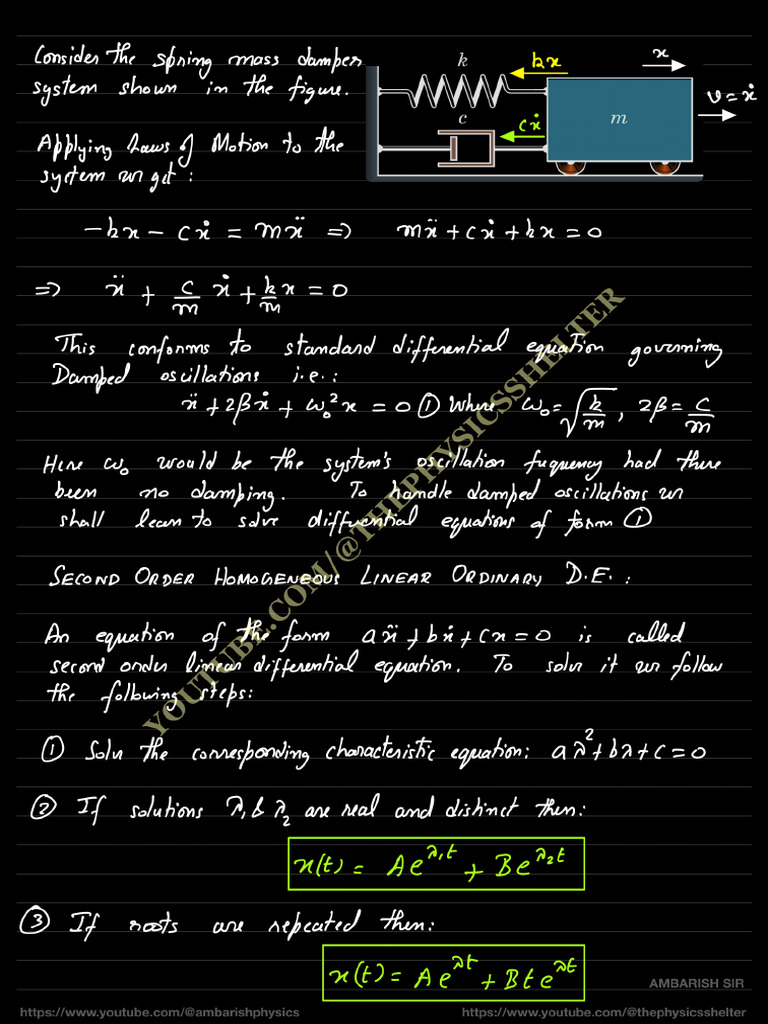 Consider the spring mass damper
system shown in the figure.
k
kx
x
v = ẋ
c
cẋ
m
Applying Laws of Motion to the
system we get :
-kx - cẋ = mẍ => mẍ + cẋ + kx = 0
=> ẍ + c/m ẋ + k/m x = 0
This conforms to standard differential equation governing
Damped oscillations i.e.:
ẍ + 2βẋ + ω₀²x = 0 ① Where ω₀ = √(k/m), 2β = c/m
Here ω₀ would be the system's oscillation frequency had there
been no damping. To handle damped oscillations we
shall learn to solve differential equations of form ①
SECOND ORDER HOMOGENEOUS LINEAR ORDINARY D.E. :
An equation of the form aẍ + bẋ + cx = 0 is called
second order linear differential equation. To solve it we follow
the following steps:
① Solve the corresponding characteristic equation: aλ² + bλ + c = 0
② If solutions λ₁ & λ₂ are real and distinct then:
x(t) = Ae^λ₁t + Be^λ₂t
③ If roots are repeated then:
x(t) = Ae^λt + Bte^λt
YOUTUBE.COM/@THEPHYSICSSHELTER
AMBARISH SIR
https://www.youtube.com/@ambarishphysics
https://www.youtube.com/@thephysicsshelter